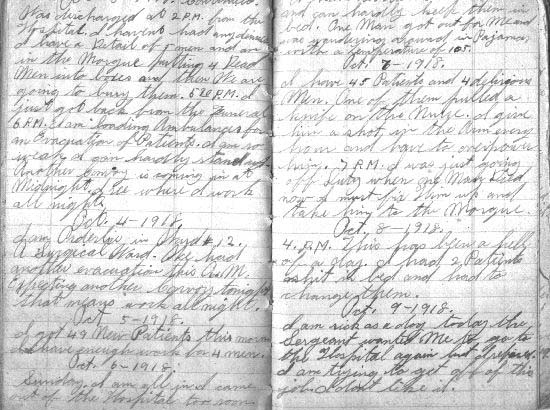 Was discharged at 2 P.M. from the
Hospital. I havent had any dinner
I have a Detail of 5 men and am
in the Morgue putting 4 Dead
Men into boxes and then We are
going to bury them. 5:30 P.M. I
just got back from the funeral
6 P.M. I am loading Ambulances for
an Evacuation of Patients. I am so
weak I can hardly stand up
Another Convoy is coming in at
Midnight. I see where I work
all night.
Oct. 4-1918.
I am Orderlie in Ward # 12.
A Surgical Ward. We had
another evacuation this A.M.
Expecting another Convoy tonight
that means work all night.
Oct. 5-1918.
I got 49 New Patients this morn
I have enough work for 4 men.
Oct. 6-1918.
Sunday. I am all in I came
out of the Hospital too soon
and can hardly keep them in
bed. One Man got out for Me and
was wandering around in Pajamas
with a temperature of 105.
Oct. 7-1918.
I have 45 Patients and 4 delirious
Men. One of them pulled a
knife on the Nurse. I give
him a shot in the Arm every
hour and have to overpower
him. 7 P.M. I was just going
off Duty when one Man Died
now I must fix Him up and
take him to the Morgue.
Oct. 8-1918.
4. P.M. This has been a hell
of a day. I had 2 Patients
shit in bed and had to
change them.
Oct. 9-1918.
I am sick as a dog today the
Sergeant wanted Me to go to
the Hospital again but I refused.
I am trying to get off of this
job I dont like it.